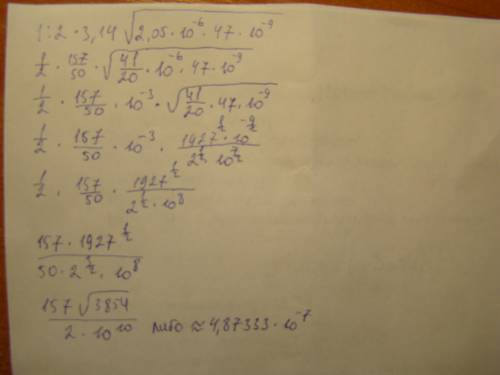 1:2 · 3,14 √(2,05 · 10^-6 · 47 · 10^-9)
1/2 · 157/50 · √(41/20 · 10^-6 · 47 · 10^-9)
1/2 · 157/50 · 10^-3 · √(41/20 · 47 · 10^-9)
1/2 · 157/50 · 10^-3 · (1927^(1/2) · 10^(-9/2))/(2^(1/2) · 10^(1/2))
1/2 · 157/50 · 1927^(1/2)/(2^(1/2) · 10^8)
(157 · 1927^(1/2))/(50 · 2^(3/2) · 10^8)
(157 √3854)/(2 · 10^10) либо ≈ 4,87333 · 10^-7